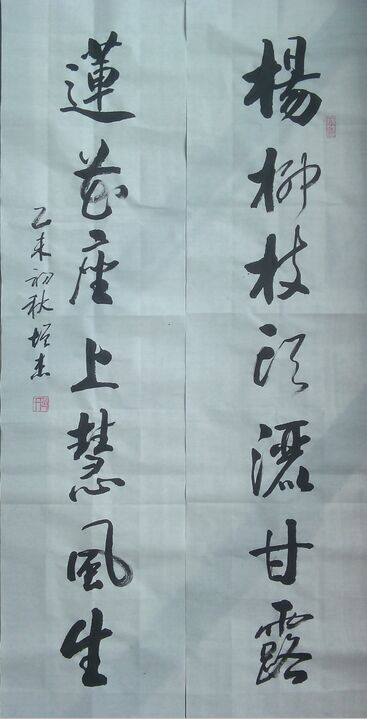 楊柳枝頭灑甘露
蓮花座上慧風生
乙未初秋增杰